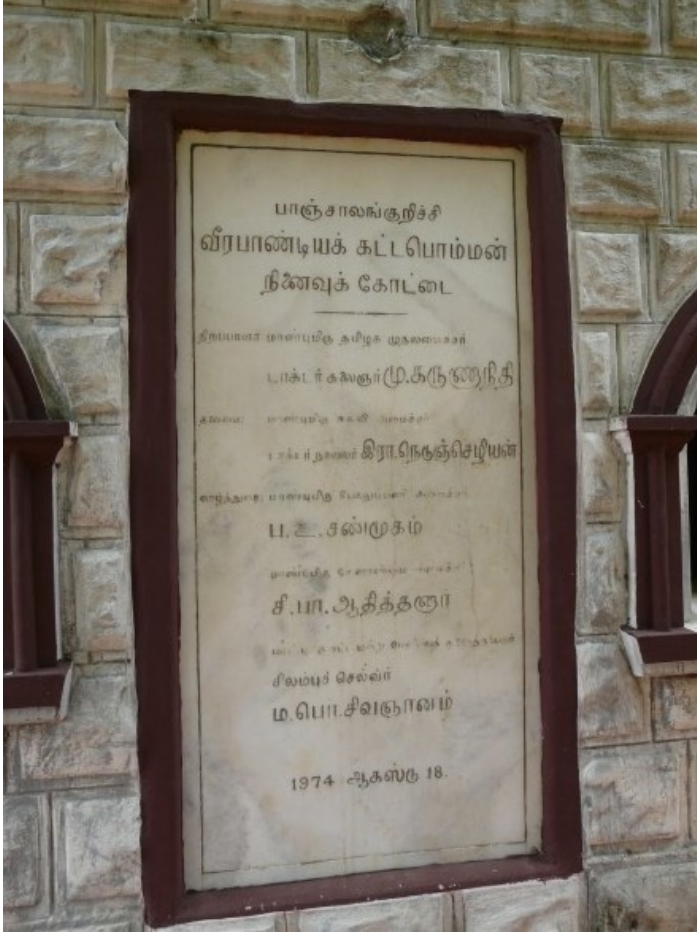 பாஞ்சாலங்குறிச்சி
வீரபாண்டியக் கட்டபொம்மன்
நினைவுக் கோட்டை
திறப்பாளர் மாண்புமிகு தமிழக முதலமைச்சர்
டாக்டர் கலைஞர் மு.கருணாநிதி
தலைமை: மாண்புமிகு கல்வி அமைச்சர்
டாக்டர் நாவலர் இரா.நெடுஞ்செழியன்
வாழ்த்துரை: மாண்புமிகு அமைச்சர்
ப.உ.சண்முகம்
மாண்புமிகு
சி.பா.ஆதித்தனார்
சிலம்புச் செல்வர்
ம.பொ.சிவஞானம்
1974 ஆகஸ்டு 18.